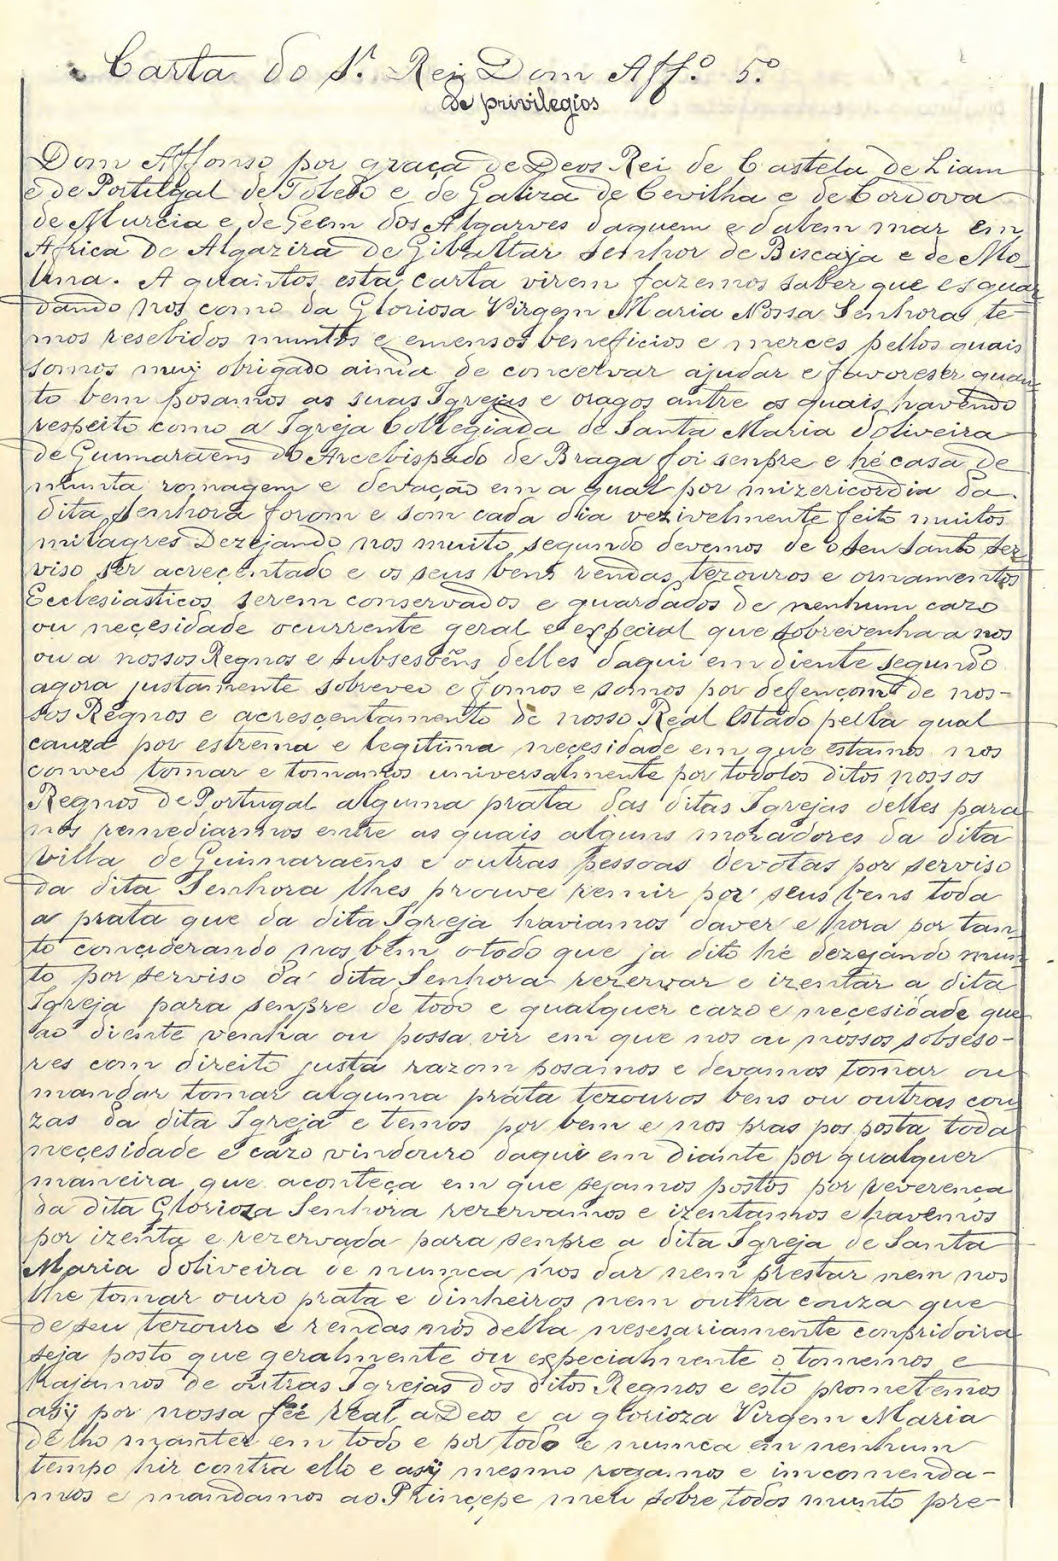 Carta do S.r Rei Dom Aff.º 5.º
de privilegios
Dom Affonso por graça de Deos Rei de Castela de Liam
e de Portugal de Toledo e de Galiza de Cevilha e de Cordova
de Murcia e de Geem dos Algarves daquem e dalem mar em
Africa de Algazira de Gibaltar senhor de Biscaja e de Mo-
lina. A quantos esta carta virem fazemos saber que esguar
dando nos como da Gloriosa Virgem Maria Nossa Senhora te-
mos resebidos muntos e emensos beneficios e merces pellos quais
somos muy obrigado ainda de concervar ajudar e favoreser quan
to bem posamos as suas Igrejas e oragos antre os quais havendo
respeito como a Igreja Collegiada de Santa Maria doliveira
de Guimaraens do Arcebispado de Braga foi senpre e hé casa de
munta romagem e devação em a qual por mizericordia da
dita Senhora forom e som cada dia vezivelmente feito muitos
milagres Dezejando nos muito segundo devemos de o seu santo ser
viso ser acreçentado e os seus bens rendas tezouros e ornamentos
Ecclesiasticos serem conservados e guardados de nenhum cazo
ou neçesidade ocurrente geral e especial que sobrevenha a nos
ou a nossos Regnos e subsesões delles daqui em diente segundo
agora justamente sobreveo e fomos e somos por defençom de nos-
sos Regnos e acresçentamento de nosso Real Estado pella qual
cauza por estrema e legitima neçesidade em que estamos nos
conveo tomar e tomamos universalmente por todolos ditos nossos
Regnos de Portugal alguma prata das ditas Igrejas delles para
nos remediarmos entre as quais alguns moradores da dita
Villa de Guimaraens e outras pessoas devotas por serviso
da dita Senhora lhes prouve remir por seus bens toda
a prata que da dita Igreja haviamos daver e hora por tan-
to conciderando nos bem o todo que ja dito hé dezejando mun-
to por serviso da dita Senhora rezervar e izentar a dita
Igreja para senpre de todo e qualquer cazo e neçesidade que
ao diente venha ou possa vir em que nos ou nossos sobseso-
res com direito justa razom posamos e devamos tomar ou
mandar tomar alguma prata tezouros bens ou outras cou
zas da dita Igreja e temos por bem e nos pras pos posta toda
neçesidade e cazo vindouro daqui em diante por qualquer
maneira que aconteça em que sejamos postos por reverença
da dita Glorioza Senhora rezervamos e izentamos e havemos
por izenta e rezervada para senpre a dita Igreja de Santa
Maria doliveira de nunca nos dar nem prestar nem nos
lhe tomar ouro prata e dinheiros nem outra couza que
de seu tezouro e rendas nos della nesesariamente conpridoira
seja posto que geralmente ou especialmente o tomemos e
hajamos de outras Igrejas dos ditos Regnos e esto prometemos
asÿ por nossa feé real a Deos e a glorioza Virgem Maria
de lho manter em todo e por todo e nunca em nenhum
tempo hir contra ello e asÿ mesmo rogamos e imcomenda-
mos e mandamos ao Prinçepe meu sobre todos munto pre-